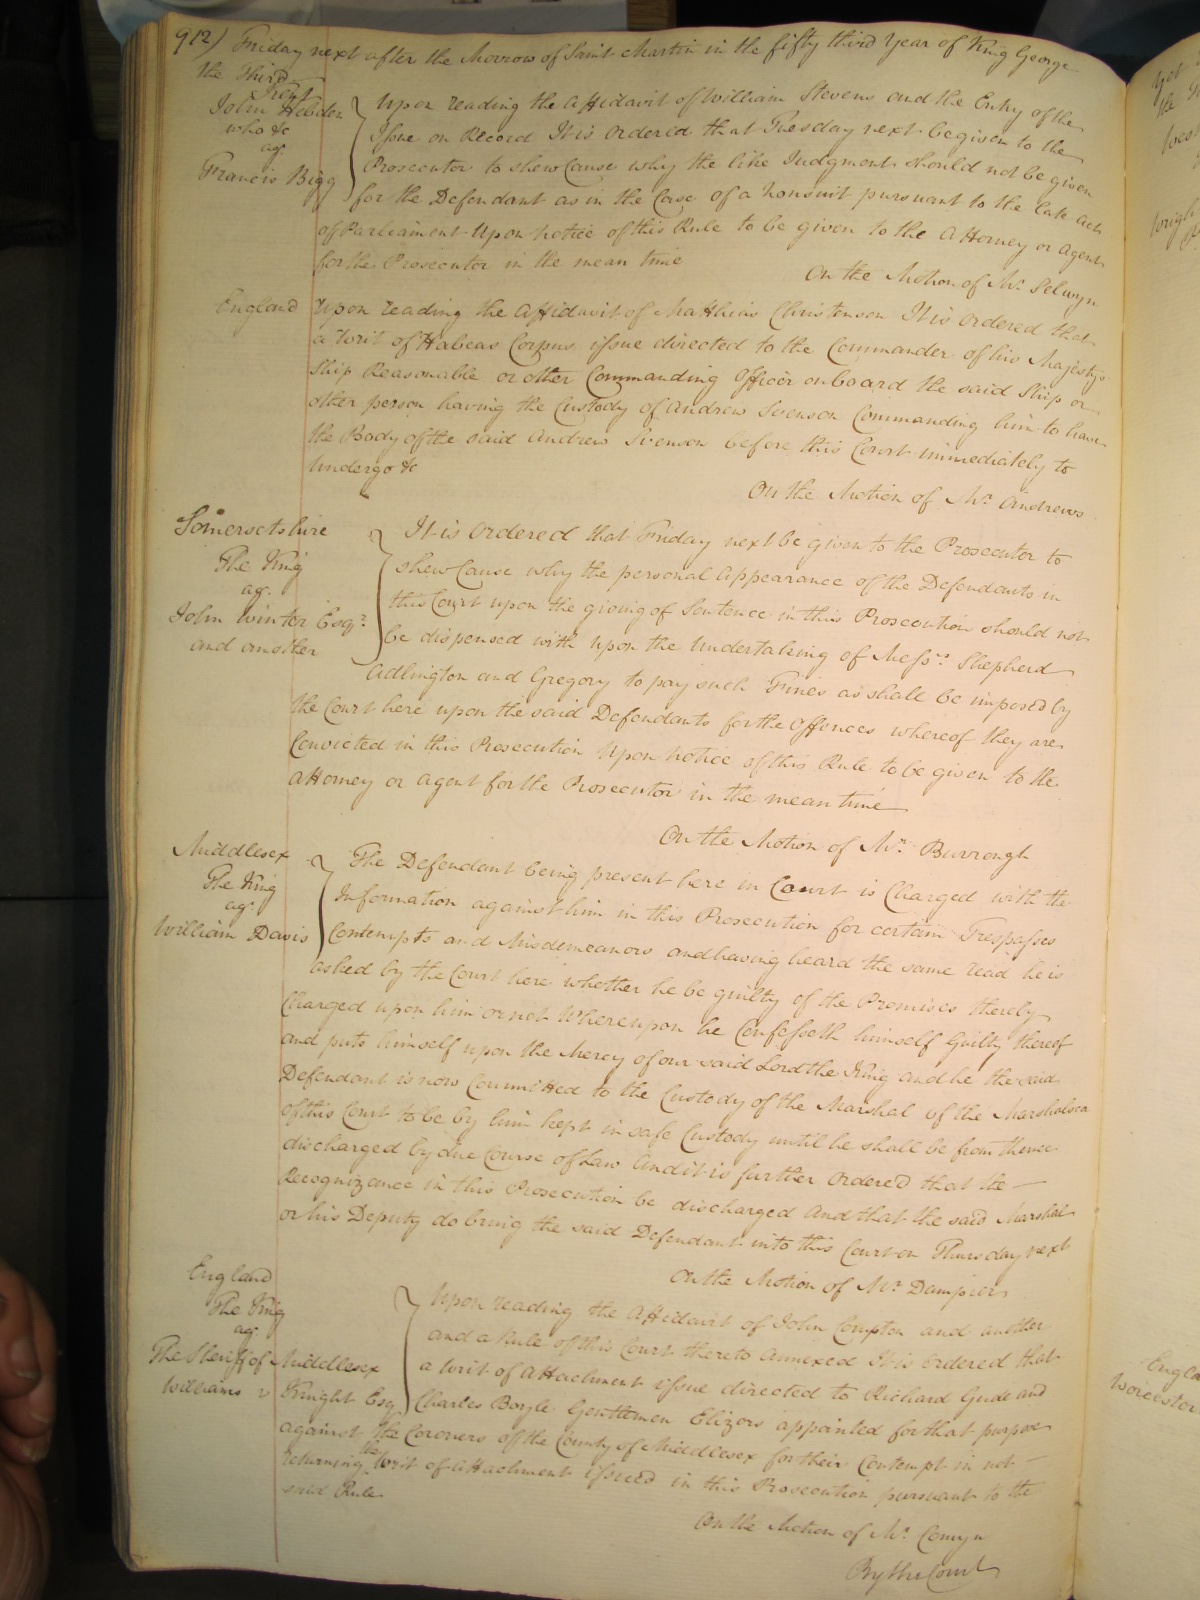 912) Friday next after the Morrow of Saint Martin in the fifty third Year of King George
the Third
Kent
John Hebden
who &c
agt
Francis Bigg
Upon reading the Affidavit of William Stevens and the Entry of the
Issue on Record It is ordered that Tuesday next be given to the
Prosecutor to shew Cause why the like Judgment should not be given
for the Defendant as in the Case of a Nonsuit pursuant to the late Act
of Parliament Upon Notice of this Rule to be given to the Attorney or Agent
for the Prosecutor in the mean time
On the Motion of Mr. Selwyn
England
Upon reading the Affidavit of Matthias Christenson It is Ordered that
a Writ of Habeas Corpus issue directed to the Commander of his Majesty's
Ship Reasonable or other Commanding Officer on board the said Ship or
other person having the Custody of Andrew Svenson Commanding him to have
the Body of the said Andrew Svenson before this Court immediately to
Undergo &c
On the Motion of Mr. Andrews
Somersetshire
The King
agt.
John Winter Esqr.
and another
It is Ordered that Friday next be given to the Prosecutor to
shew Cause why the personal Appearance of the Defendants in
this Court upon the giving of Sentence in this Prosecution should not
be dispensed with upon the Undertaking of Messrs. Shepherd
Adlington and Gregory to pay such Fines as shall be imposed by
the Court here upon the said Defendants for the Offences whereof they are
Convicted in this Prosecution Upon Notice of this Rule to be given to the
Attorney or Agent for the Prosecutor in the mean time
On the Motion of Mr. Burrough
Middlesex
The King
agt.
William Davis
The Defendant being present here in Court is Charged with the
Information against him in this Prosecution for certain Trespasses
Contempts and Misdemeanors and having heard the same read he is
asked by the Court here whether he be guilty of the Premises thereby
Charged upon him or not Whereupon he Confesseth himself Guilty thereof
and puts himself upon the Mercy of our said Lord the King and he the said
Defendant is now Committed to the Custody of the Marshal of the Marshalsea
of this Court to be by him kept in safe Custody until he shall be from thence
discharged by due Course of Law And it is further Ordered that the
Recognizance in this Prosecution be discharged And that the said Marshal
or his Deputy do bring the said Defendant into this Court on Thursday next
On the Motion of Mr. Dampier
England
The King
agt.
The Sheriff of Middlesex
Williams v Knight Esq
Upon reading the Affidavit of John Compton and another
and a Rule of this Court thereto annexed It is Ordered that
a Writ of Attachment issue directed to Richard Gude and
Charles Boyle Gentlemen Elizors appointed for that purpose
against the Coroners of the County of Middlesex for their Contempt in not
returning the Writ of Attachment issued in this Prosecution pursuant to the
said Rule
On the Motion of Mr. Comyn
By the Court
Engla
Worcester